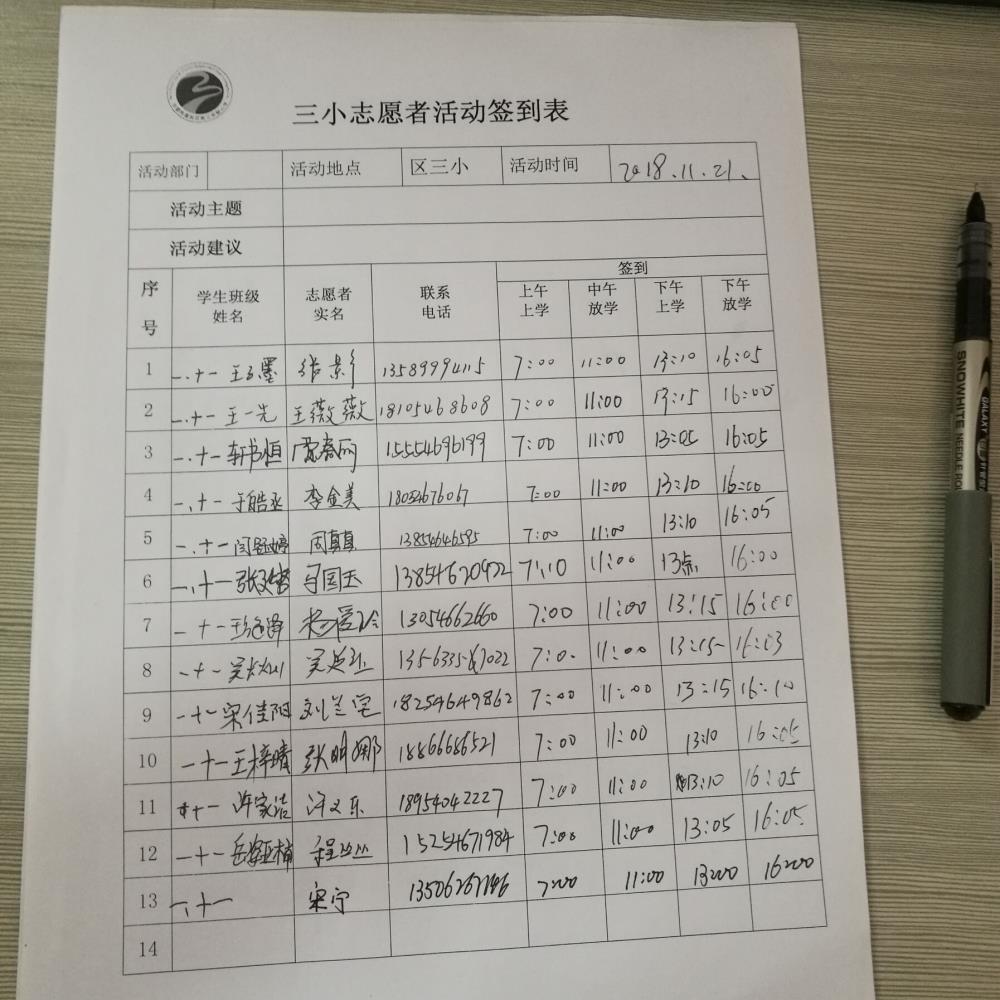 三小志愿者活动签到表
活动部门 活动地点 区三小 活动时间 2018.11.21.
活动主题
活动建议
序号 学生班级姓名 志愿者实名 联系电话 签到
上午上学 中午放学 下午上学 下午放学
1 一.十一 王 墨 影 7:00 11:00 13:10 16:05
2 一.十一 王一先 王薇薇 18105468608 7:00 11:00 13:15 16:00
3 一.十一 轩书恒 15554696199 7:00 11:00 13:05 16:05
4 一.十一 于皓丞 李金美 18054676067 7:00 11:00 13:10 16:00
5 一.十一 闫 婷 周真真 13854646595 7:00 11:00 13:10 16:05
6 一.十一 张 国玉 13854670922 7:10 11:00 13点 16:00
7 一十一 王 泽 杨爱玲 13054662660 7:00 11:00 13:15 16:00
8 一十一 吴 吴 7:00 11:00 13:15 16:03
9 一十一 宋佳阳 刘兰宝 18254649862 7:00 11:00 13:15 16:10
10 一十一 王梓晴 张明娜 18866686521 7:00 11:00 13:10 16:05
11 十一 许家洁 许文东 18954042227 7:00 11:00 13:10 16:05
12 一十一 岳 楠 程丛丛 15254671984 7:00 11:00 13:05 16:05
13 一.十一 宋宁 7:00 11:00 13:00 16:00
14
SNOWHITE NEEDLE
GALAXY